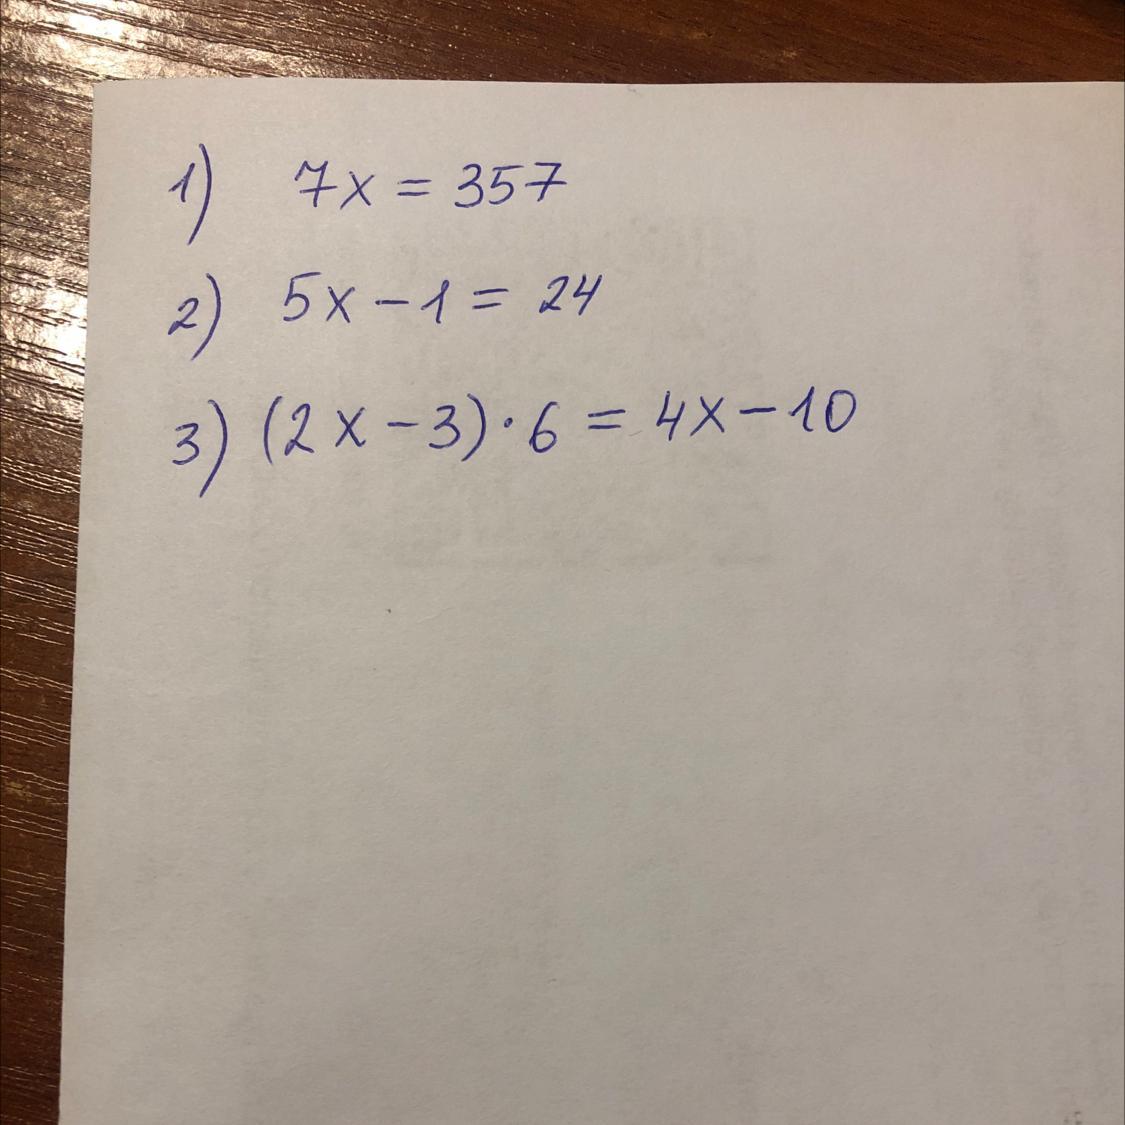 1) 7x = 357
2) 5x - 1 = 24
3) (2x - 3) · 6 = 4x - 10